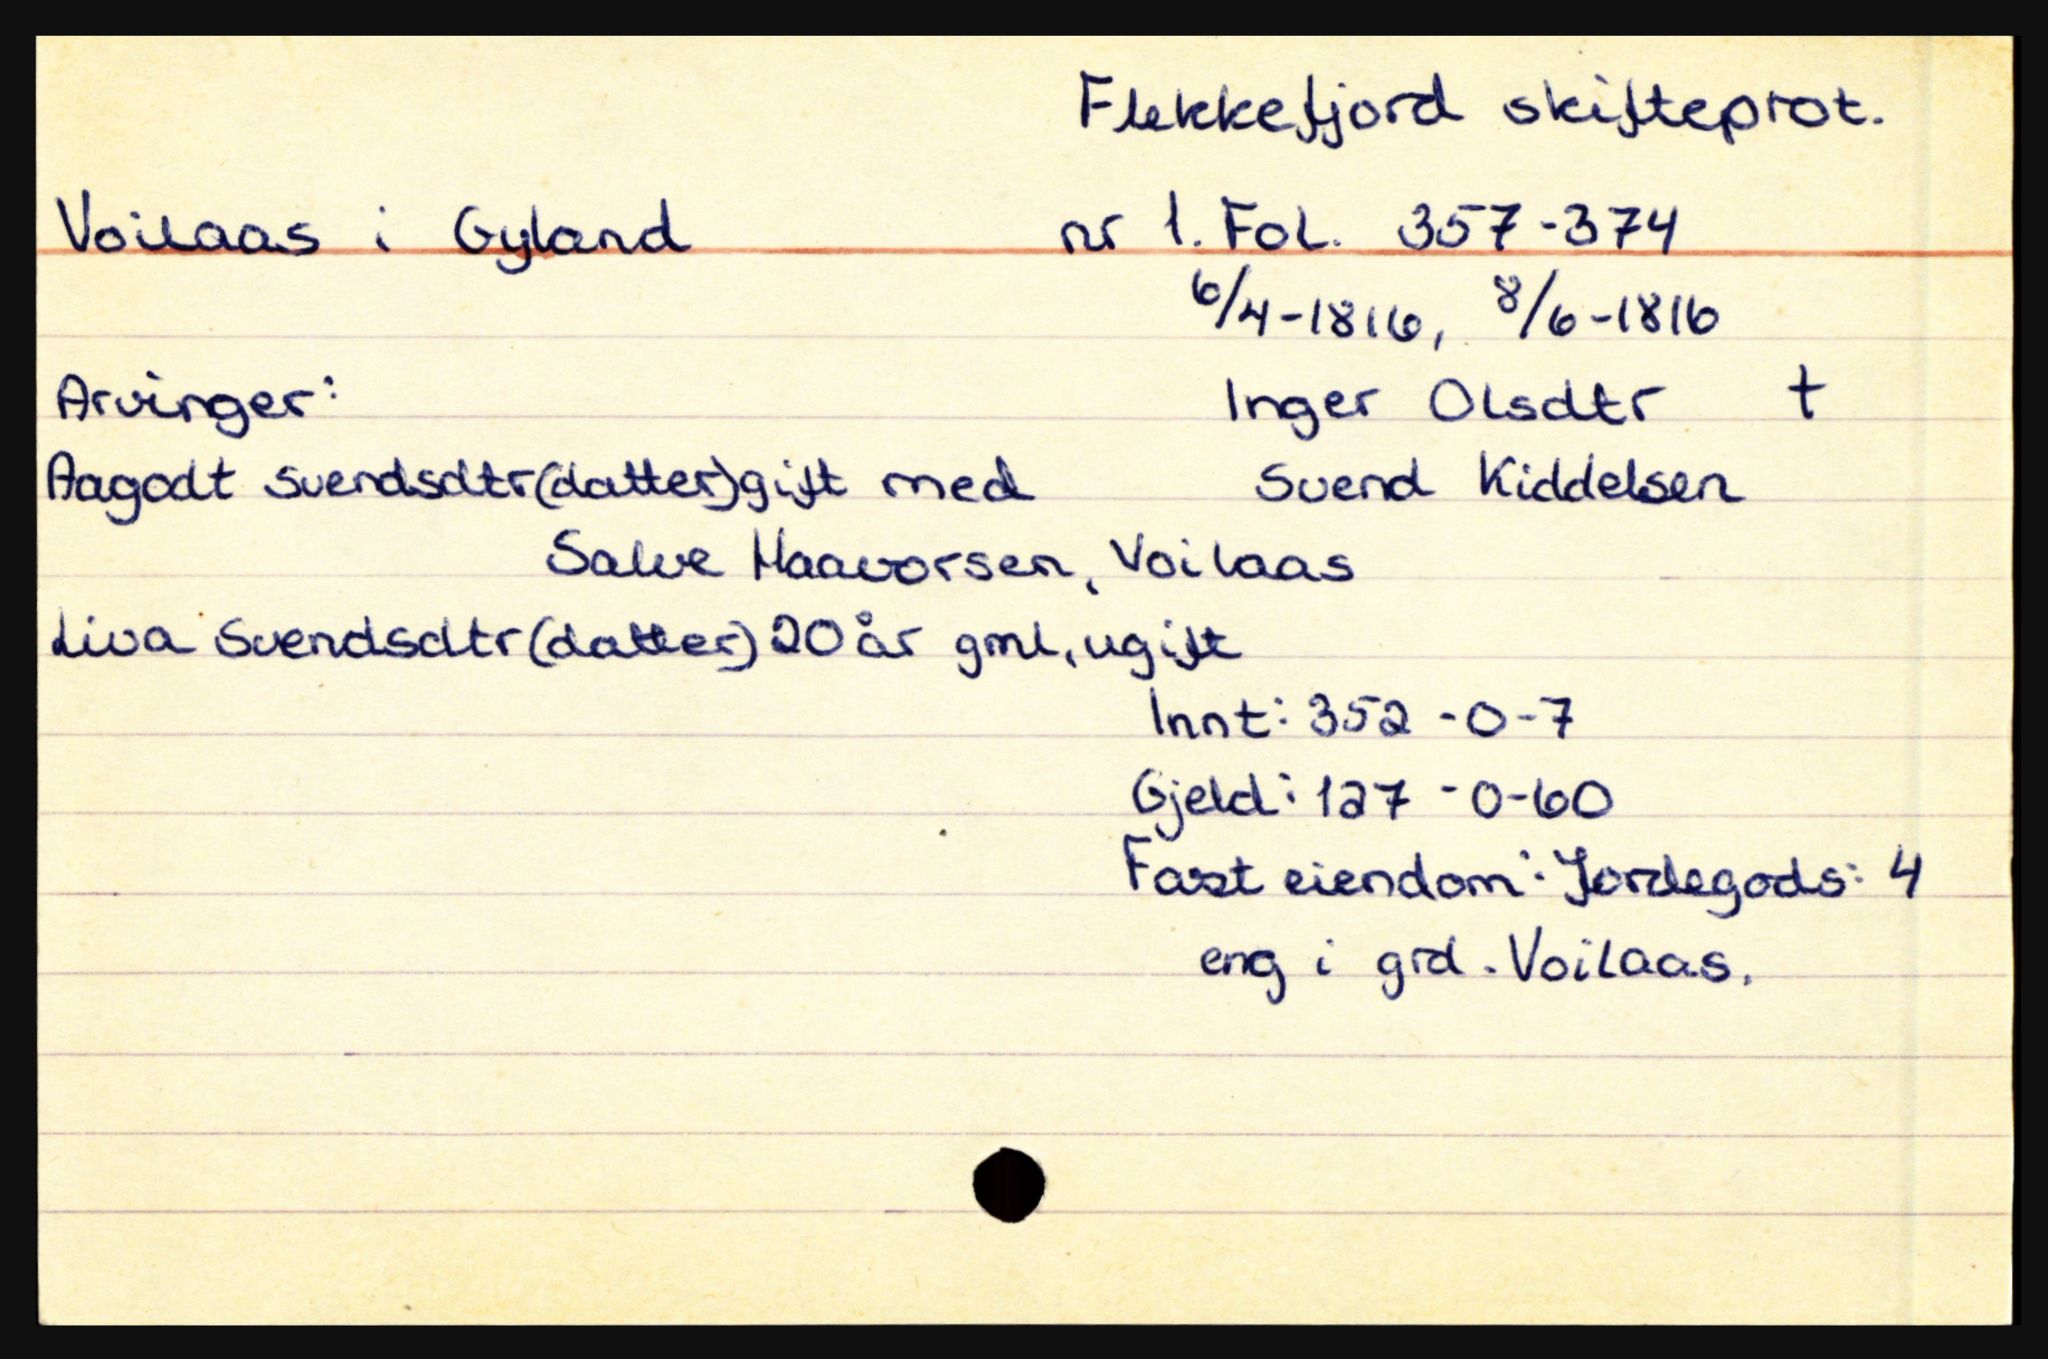 Flekkefjord skifteprot.
Voilaas i Gyland nr 1. Fol. 357-374
6/4-1816, 8/6-1816
Arvinger: Inger Olsdtr †
Aagodt Svendsdtr(datter)gift med Svend Kiddelsen
Salve Haavorsen, Voilaas
Liva Svendsdtr(datter) 20 år gml, ugift
Innt: 352-0-7
Gjeld: 127-0-60
Fast eiendom: Jordegods: 4
eng i grd. Voilaas.